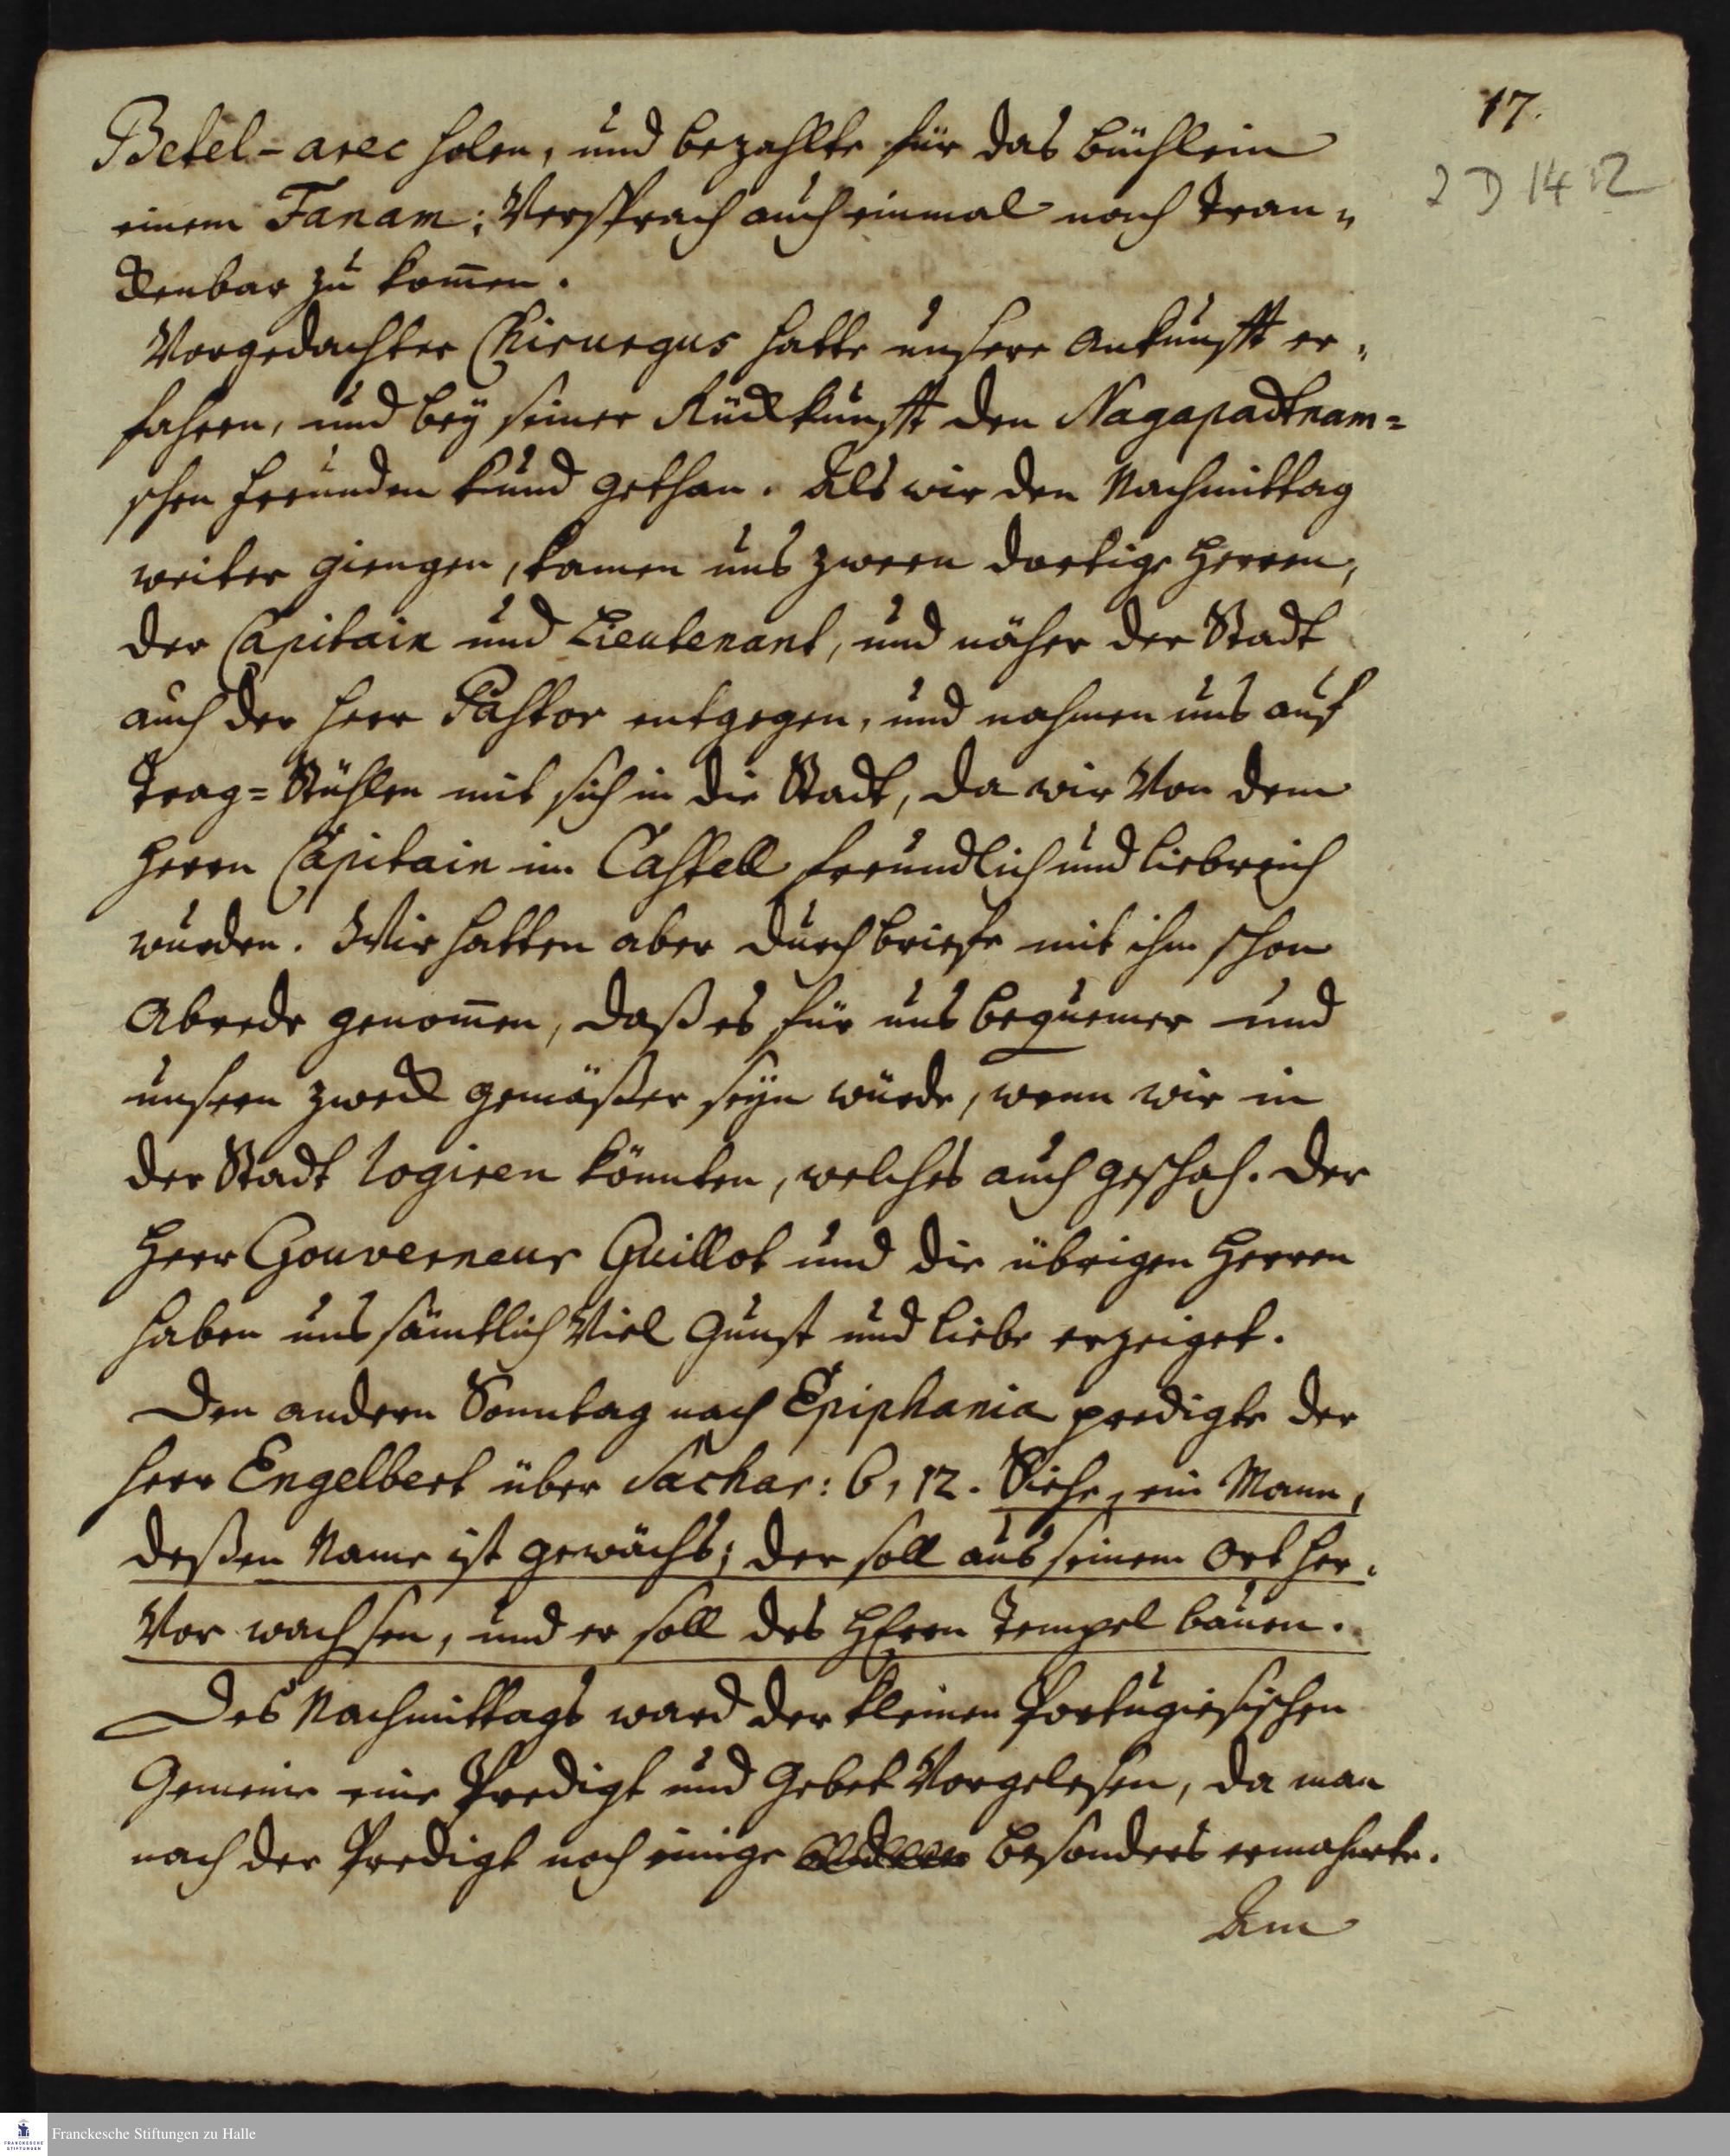 17.
2 D 14 12
Betel-arec holen, und bezahlte für das büchlein
einem Fanam; Versprach auch einmal nach Tran„
ckenbar zu kom̄en.
Vorgedachter Chirurgus hatte unsere Ankunfft er„
fahren, und bey seiner Rückkunfft den Nagapadtnam=
schen Freunden kund gethan. Als wir den Nachmittag
weiter giengen, kamen uns zween dortige Herren,
der Capitain und Lieutenant, und näher der Stadt
auch der Herr Pastor entgegen, und nahmen uns auf
Trag=Stühlen mit sich in die Stadt, da wir Von dem
Herrn Capitain im Castell freundlich und liebreich
wurden. Wir hatten aber durch briefe mit ihm schon
Abrede genom̄en, daß es für uns bequemer und
unsern zweck gemäßer seyn würde, wenn wir in
der Stadt logiren könnten, welches auch geschah. Der
Herr Gouverneur Guillot und die übrigen Herren
haben uns sämtlich Viel Gunst und liebe erzeiget.
Den andern Sonntag nach Epiphania predigte der
Herr Engelbert über Sachar: 6, 12. Siehe, ein Mann,
deßen Name ist gewächs; der soll aus seinem Ort her„
Vor wachsen, und er soll des HErrn Tempel bauen.
Des Nachmittags ward der kleinen Portugiesischen
Gemeine eine Predigt und Gebet Vorgelesen, da man
nach der Predigt noch einige besonders ermahnte.
Am
FRANCKESCHE
STIFTUNGEN
Franckesche Stiftungen zu Halle